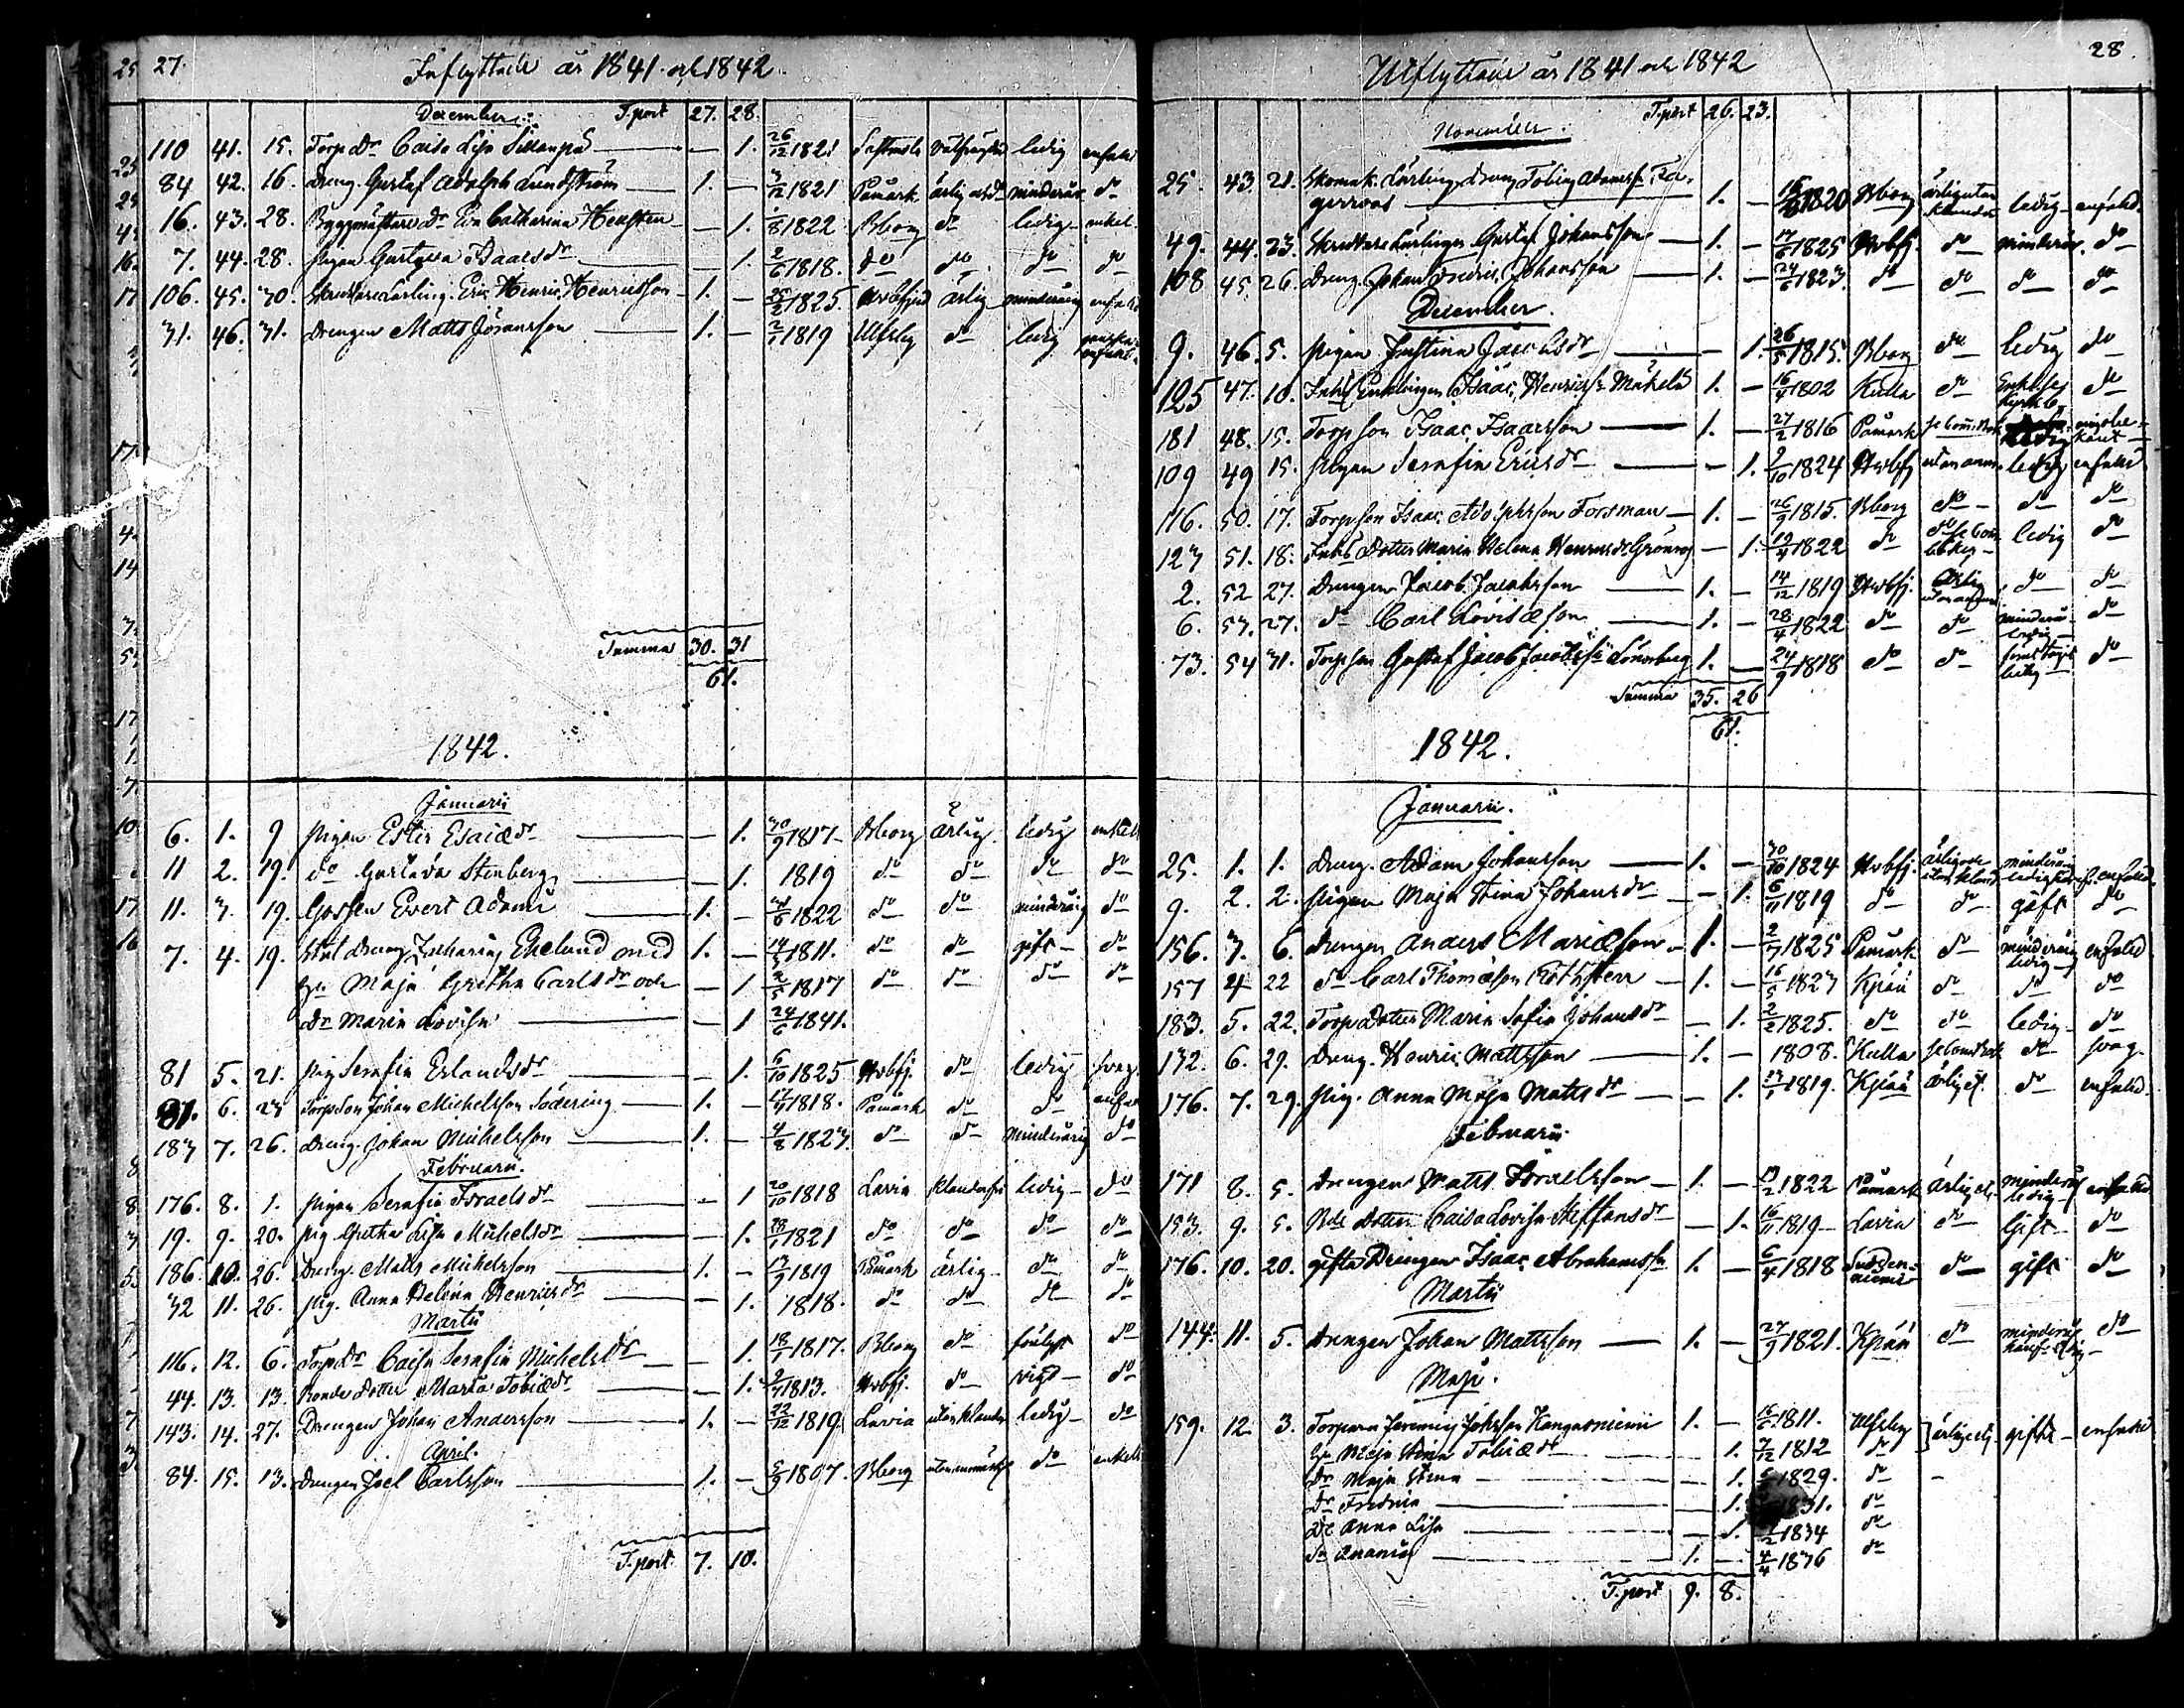 27.
Inflyttade år 1841. och 1842.
December. T.port 27. 28.
110 41. 15. Torp.dr Caisa Lisa Sillanpä — 1. 26/12 1821 ledig enfald
84 42. 16. Dreng. Gustaf Adolph Lundström 1. — 3/12 1821 Påmark ärlig minderår. do
16. 43. 28. Byggmästare dr Eva Catharina — 1. 1822 Bborg do ledig enkel.
7. 44. 28. Pigan Gustava Isaacsdr — 1. 2/6 1818. do do do do
106. 45. 30. Skräddare Lärling. Eric Henric Henricsson 1. — 25/2 1825. Hvbfjerd ärlig minderårig enfald
31. 46. 31. Drengen Matts Göransson 1. — 1819 Ulfsby do ledig
Summa 30. 31
61.
1842.
Januarii
6. 1. 9 Pigan Ester Esaiædr — 1. 30/9 1817 Bborg ärlig ledig enkel
11 2. 19. do Gustava Stenberg — 1. 1819 do do do do
11. 3. 19. Gossen Evert Adami 1. — 1822 do do minderårig do
7. 4. 19. Dreng Zacharias Ekelund med 1. — 1811. do do gift do
hu Maja Gretha Carlsdr och — 1 1817 do do do do
dr Maria Lovisa — 1 24/6 1841.
81 5. 21. Pig Serafia Erlandsdr — 1. 6/10 1825 Hvbfj. do ledig svag.
81. 6. 23 Torp.Son Johan Michelsson Södering 1. — 1818. Påmark do do enfald
183 7. 26. Dreng. Johan Michelsson 1. — 4/8 1823. do do minderårig do
Februarii.
176. 8. 1. Pigan Serafia Israelsdr — 1 20/10 1818 Lavia klanderfri ledig do
19. 9. 20. Pig. Gretha Lisa Michelsdr — 1. 1821 do do do do
186. 10. 26. Dreng. Matts Michelsson 1. — 1819 Påmark ärlig do do
32 11. 26. Pig. Anna Helena Henricsdr — 1. 1818. do do do do
Martii
116. 12. 6. Torp.dr Caisa Serafia Michelsdr — 1. 1817. Bborg do do
44. 13. 13. Bonde Dotter Marta Tobiædr — 1. 1813. Hvbfj. do vigd do
143. 14. 27. Drengen Johan Andersson 1. — 22/12 1819 Lavia utan klander ledig do
April.
84. 15. 13. Drengen Joel Carlsson 1. — 5/9 1807. Bborg utan anmärkn. do enkelt
T.port 7. 10.
28
Utflyttade år 1841 och 1842
T.port 26. 23.
November.
25. 43. 21. Skomak. Lärling. Dreng Tobias Adamss.
1. — 1820 Bborg ärlig utan klander ledig enfald.
49. 44. 23. Skräddare Lärlingen Gustaf Johansson 1. — 17/6 1825 Hvbfj. do minderår. do
108 45. 26. Dreng. Johan Fredric Johansson 1. — 24/6 1823. do do do do
December.
9. 46. 5. Pigan Justina Jacobsdr — 1. 26/5 1815. Bborg do ledig do
125 47. 10. Inhs Enklingen Isaac Henricss. Mäkelä 1. — 16/4 1802 Kulla do do
181 48. 15. Torp.Son Isaac Isaacsson 1. — 27/2 1816 Påmark
109 49 15. Pigan Serafia Ericsdr — 1. 2/10 1824 Hvbfj utan anm. ledig enfald
116. 50. 17. Torp.Son Isaac Adolphsson Forsman 1. — 26/9 1815. Bborg do do do
123 51. 18. Inhs Dotter Maria Helena Henricsdr Grönroos — 1. 19/4 1822 do do ledig do
2. 52 27. Drengen Jacob Jacobsson 1. — 14/12 1819 Hvbfj. Ärlig do do
6. 53. 27. do Carl Lovisæson 1. — 28/4 1822 do do minderår. ledig do
73. 54 31. Torp.Son Gustaf Jacob Jacobss. Lönnberg 1. — 24/9 1818 do do do
Summa 35. 26
61.
1842.
Januarii.
25. 1. 1. Dreng. Adam Johansson 1. — 30/10 1824 Hvbfj. ärlig och utan kland minderårig ledig enfald.
9. 2. 2. Pigan Maja Stina Johansdr — 1. 6/11 1819 do do gift do
156. 3. 6. Drengen Anders Mariæson 1. — 1825 Påmark. do minderårig ledig enfald
157 4 22 do Carl Thomæson Rothsten 1. — 16/5 1823 Kjpää do do do
183. 5. 22. Torp.Dotter Maria Sofia Johansdr — 1. 2/2 1825. do do ledig do
132. 6. 29. Dreng. Henric Mattsson 1. — 1808. Kulla do svag.
176. 7. 29. Pig. Anna Maja Mattsdr — 1. 1819. Kjpää ärlig etc. do enfald.
Februarii
171 8. 5. Drengen Matts Israelsson 1. — 1822 Påmark ärlig etc. minderårig ledig enfald
153. 9. 5. Bde Dotter Caisa Lovisa Steffansdr — 1. 16/11 1819 Lavia do Gift do
176. 10. 20. gifta Drengen Isaac Abrahamss. 1. — 6/4 1818 do gift do
Martii
144. 11. 5. Drengen Johan Mattsson 1. — 27/9 1821. Kjpää do minderår. do
Maji.
159. 12 3. Torparen Jeremias Johsson Kangasniemi 1. — 1811. Ulfsby ärlig etc. gifte enfald
hu Maja Stina Tobiædr 1. 7/12 1812 do
dr Maja Stina 1. 1829. do
dr Fredrica 1. 1831. do
dr Anna Lisa — 1. 1834 do
Sn Ananias 1. — 4/4 1836 do
T.port 9. 8.